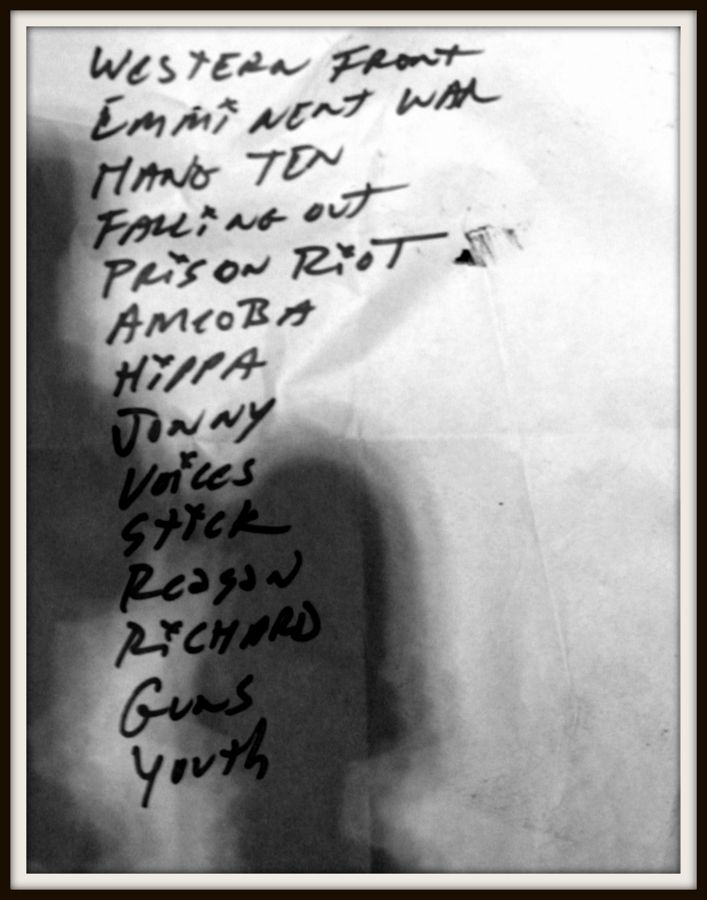 WESTERN FRONT
EMMINENT WAR
HANG TEN
FALLING OUT
PRISON RIOT
AMEOBA
HIPPA
JONNY
VOICES
STICK
Reagan
RICHARD
GUNS
Youth